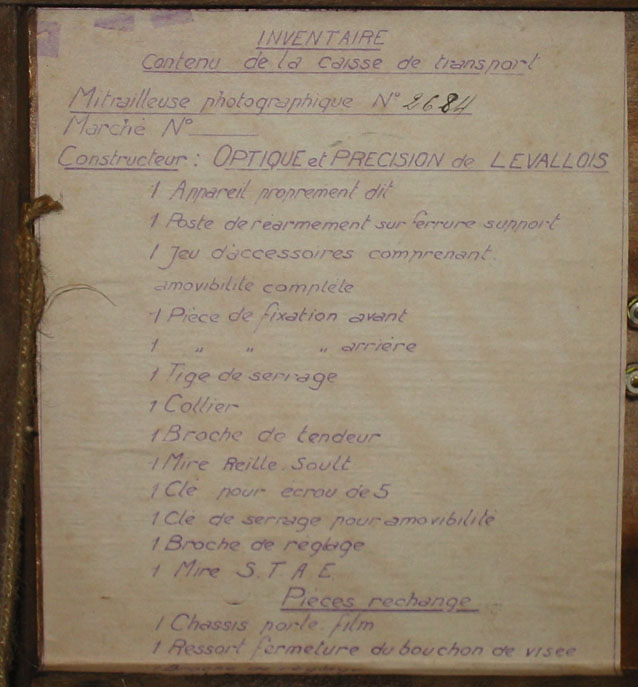 INVENTAIRE
Contenu de la caisse de transport
Mitrailleuse photographique N° 2684
Marché N° ______
Constructeur : OPTIQUE et PRECISION de LEVALLOIS
1 Appareil proprement dit
1 Poste de rearmement sur ferrure support
1 Jeu d'accessoires comprenant.
amovibilité complète
1 Pièce de fixation avant
1 " " " arrière
1 Tige de serrage
1 Collier
1 Broche de tendeur
1 Mire Reille. Soult
1 Clé pour ecrou de 5
1 Clé de serrage pour amovibilité
1 Broche de réglage
1 Mire S.T.A.E.
Pièces rechange
1 Chassis porte film
1 Ressort fermeture du bouchon de visée